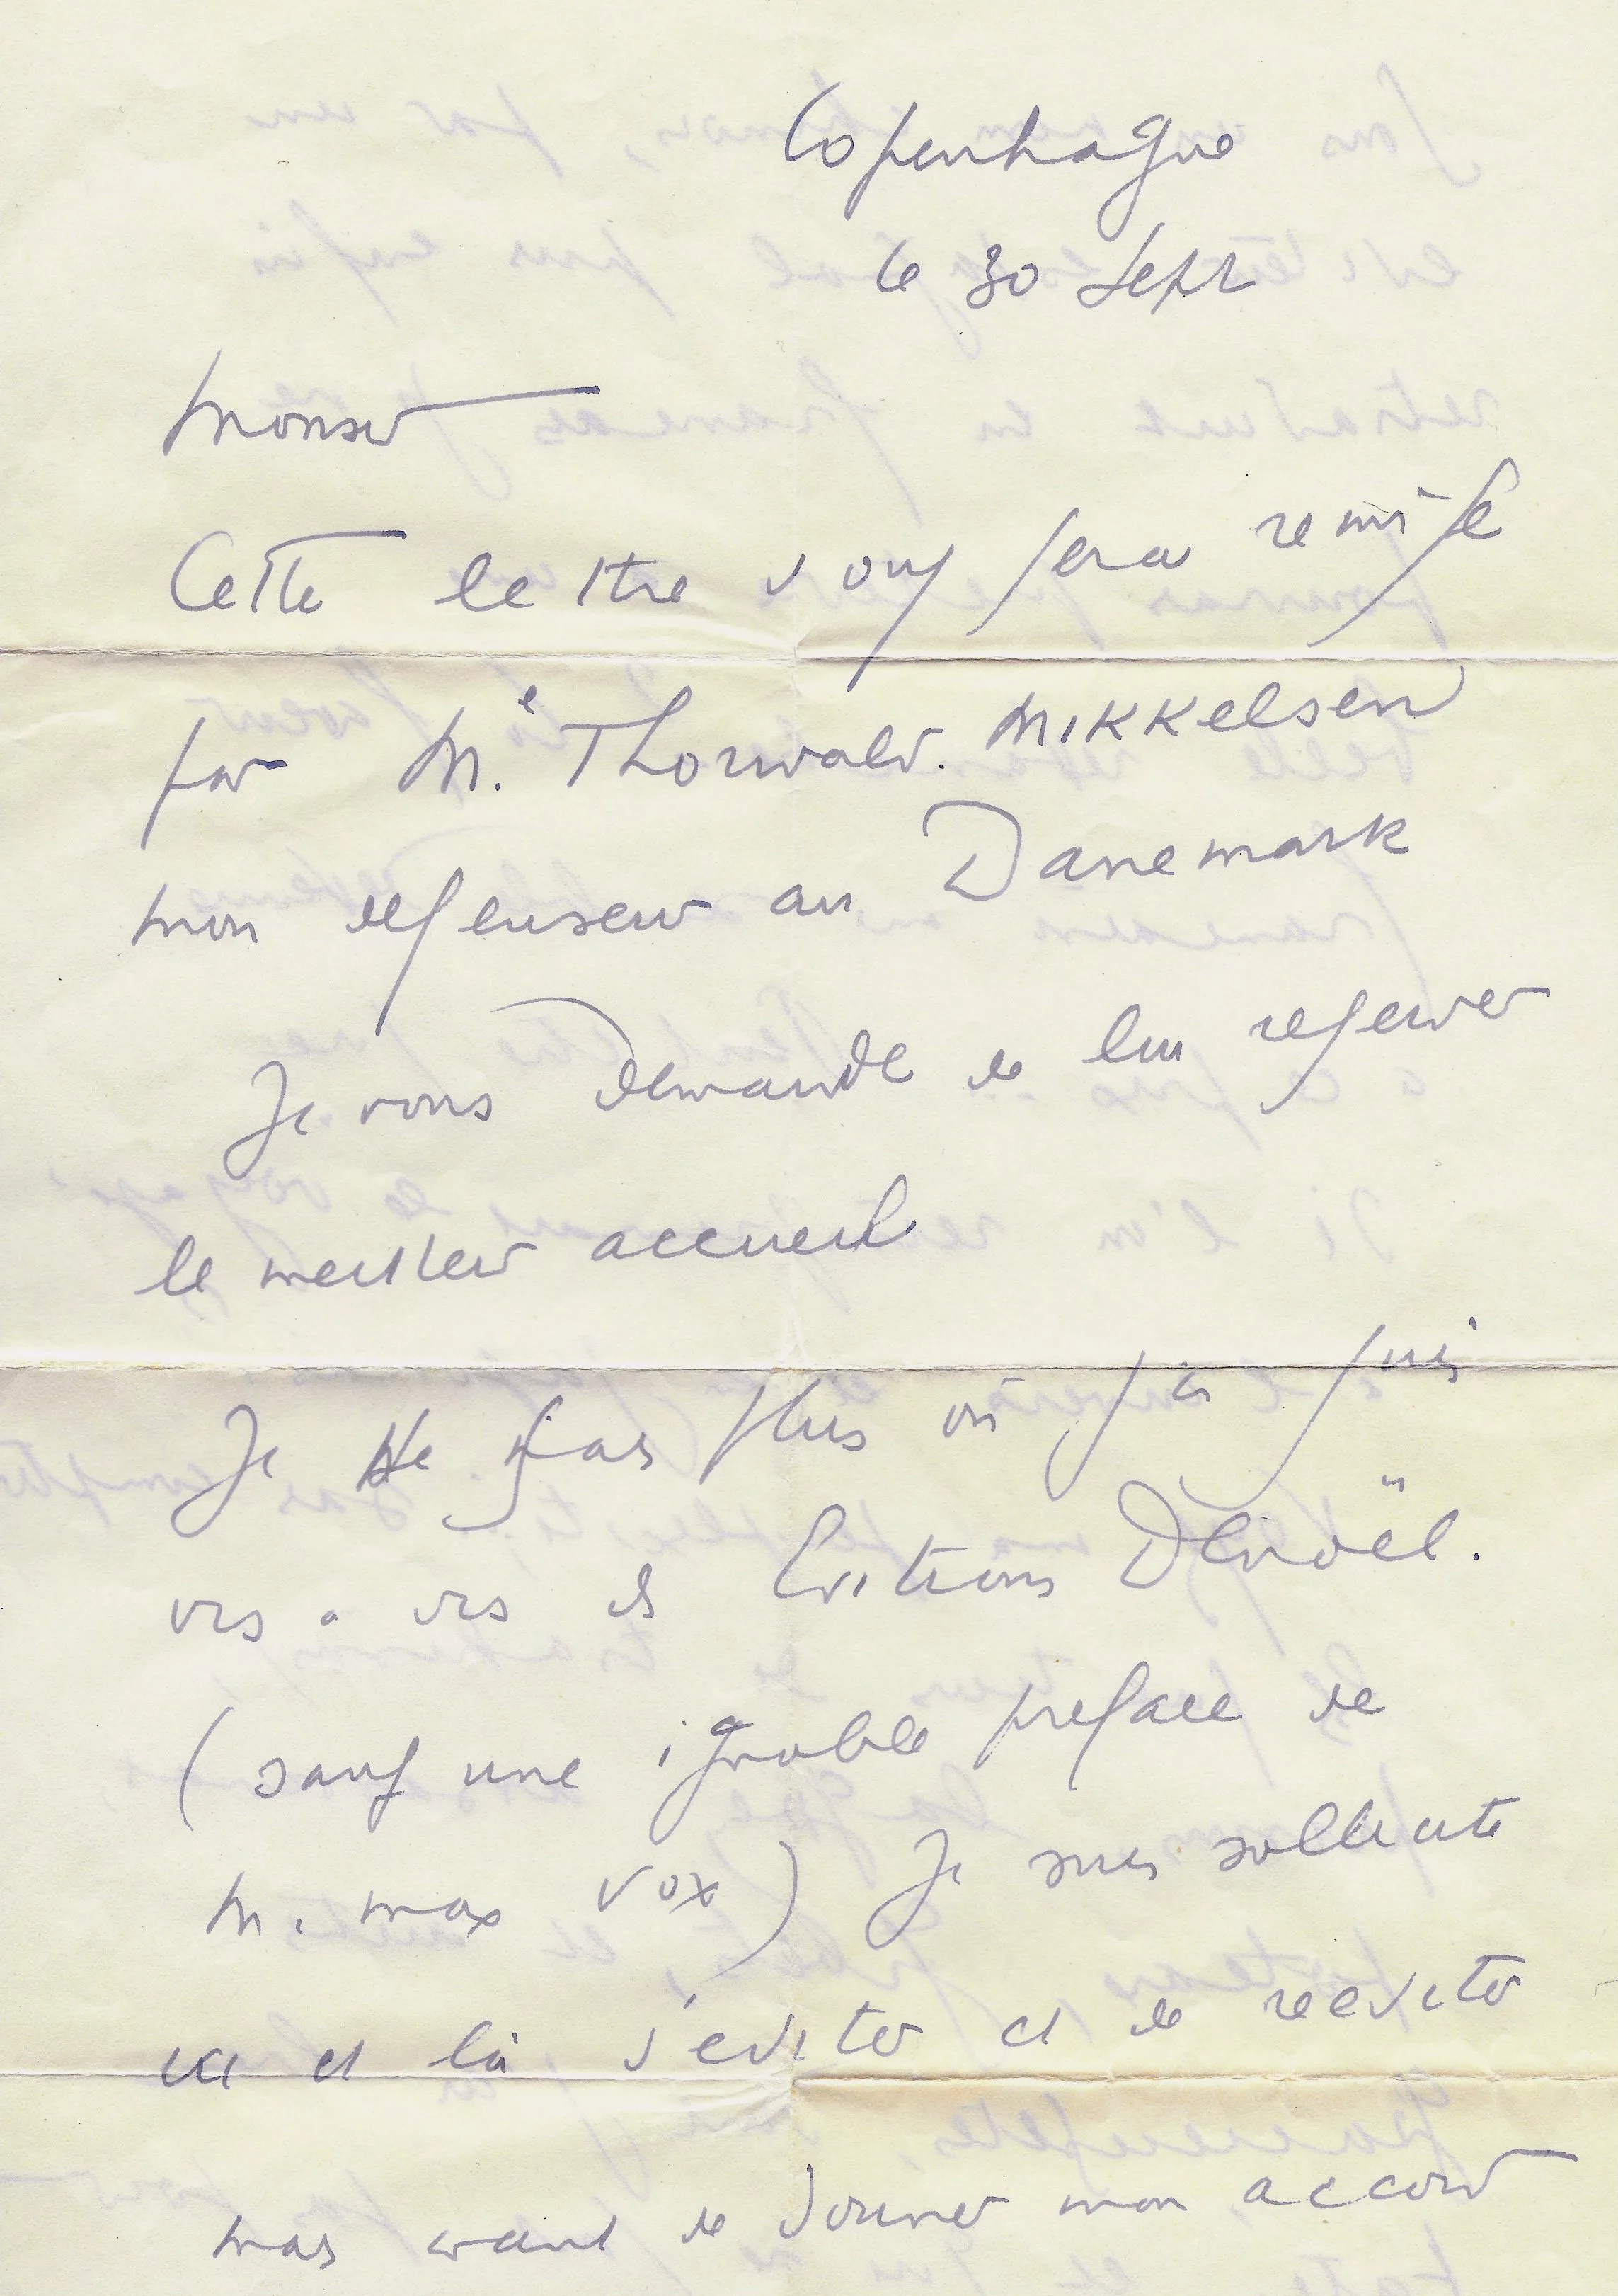 Copenhague
le 30 Sept
Monsieur
Cette lettre vous sera remise
par Me. Thorvald. MIKKELSEN
mon defenseur au Danemark
Je vous demande de lui reserver
le meilleur accueil
Je ne sais plus où j'en suis
vis a vis des Editions Denoël.
(sauf une ignoble preface de
M. Max Vox) Je suis sollicité
ici et là d'editer et de reediter
mais avant de donner mon accord